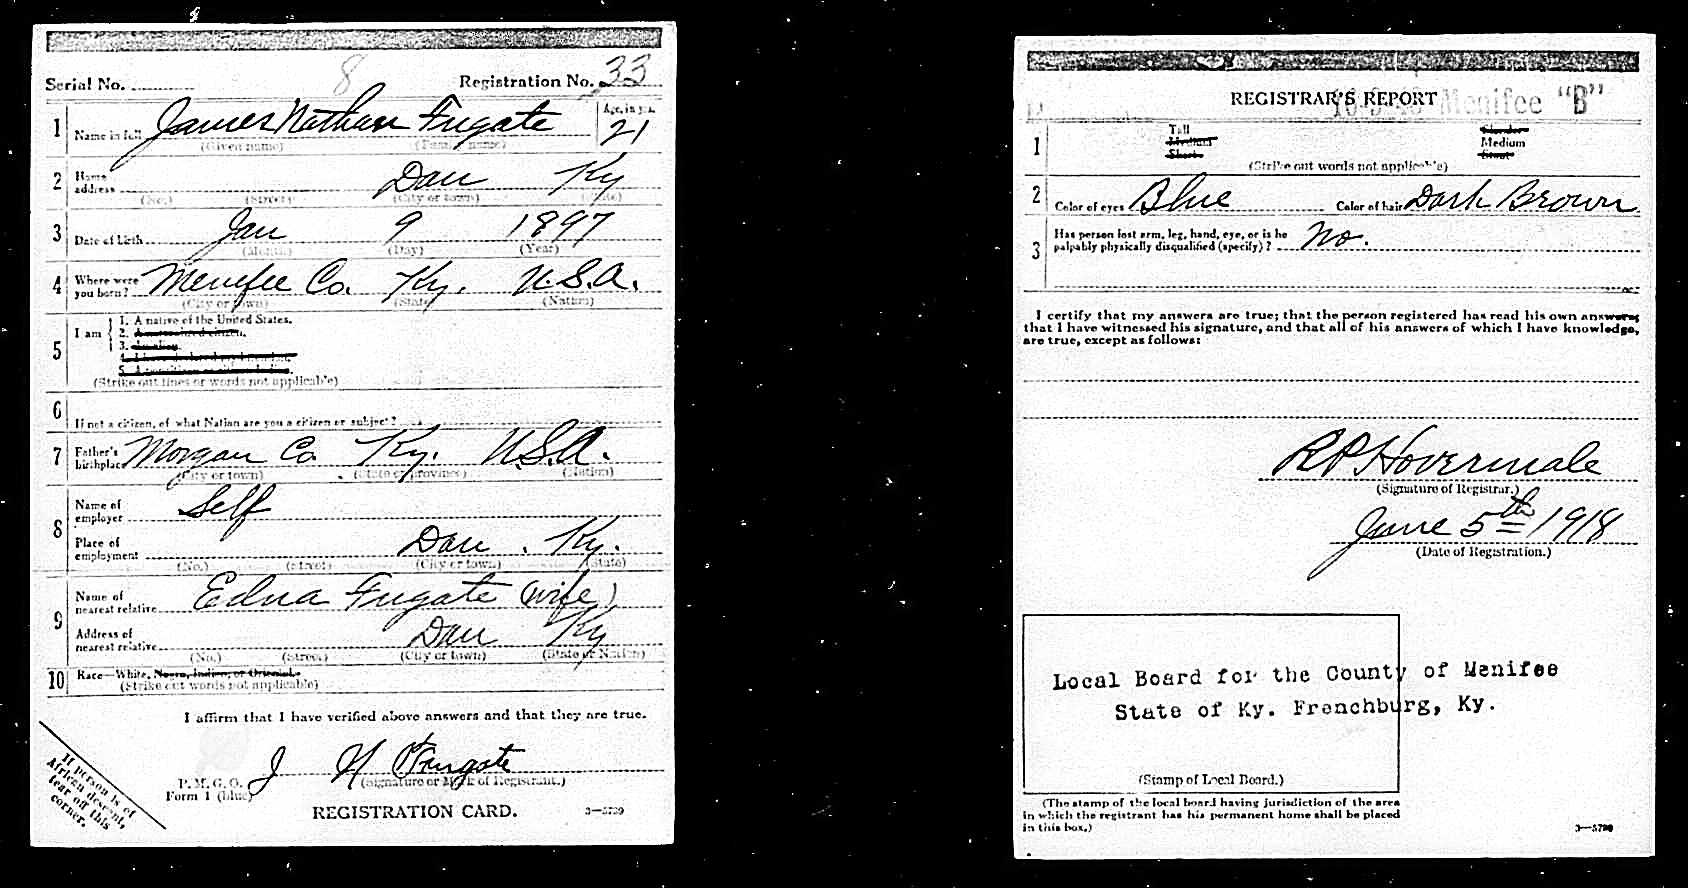 Serial No. 8 Registration No. 33
1 Name in full James Nathan Fugate Age, in yrs. 21
(Given name) (Family name)
2 Home address Dan Ky
(No.) (Street) (City or town) (State)
3 Date of birth Jan 9 1897
(Month) (Day) (Year)
4 Where were you born? Menifee Co. Ky. U.S.A.
(City or town) (State) (Nation)
5 I am 1. A native of the United States.
2. A naturalized citizen.
3. An alien.
4. I have declared my intention.
5. A noncitizen or citizen Indian.
(Strike out lines or words not applicable)
6 If not a citizen, of what Nation are you a citizen or subject?
7 Father's birthplace Morgan Co. Ky. U.S.A.
(City or town) (State or province) (Nation)
8 Name of employer Self
Place of employment Dan. Ky.
(No.) (Street) (City or town) (State)
9 Name of nearest relative Edna Fugate (wife)
Address of nearest relative Dan Ky
(No.) (Street) (City or town) (State or Nation)
10 Race—White, Negro, Indian, or Oriental.
(Strike out words not applicable)
I affirm that I have verified above answers and that they are true.
J N Fugate
P. M. G. O. (Signature or Mark of Registrant.)
Form 1 (blue)
REGISTRATION CARD. 3—5799
If person is of
African descent,
tear off this
corner.
REGISTRAR'S REPORT Menifee "B"
1 Tall Slender
Medium Medium
Short Stout
(Strike out words not applicable)
2 Color of eyes Blue Color of hair Dark Brown
3 Has person lost arm, leg, hand, eye, or is he
palpably physically disqualified (specify)? No.
I certify that my answers are true; that the person registered has read his own answers;
that I have witnessed his signature, and that all of his answers of which I have knowledge,
are true, except as follows:
R P Hovermale
(Signature of Registrar.)
June 5th 1918
(Date of Registration.)
Local Board for the County of Menifee
State of Ky. Frenchburg, Ky.
(Stamp of Local Board.)
(The stamp of the local board having jurisdiction of the area
in which the registrant has his permanent home shall be placed
in this box.)
3—5799